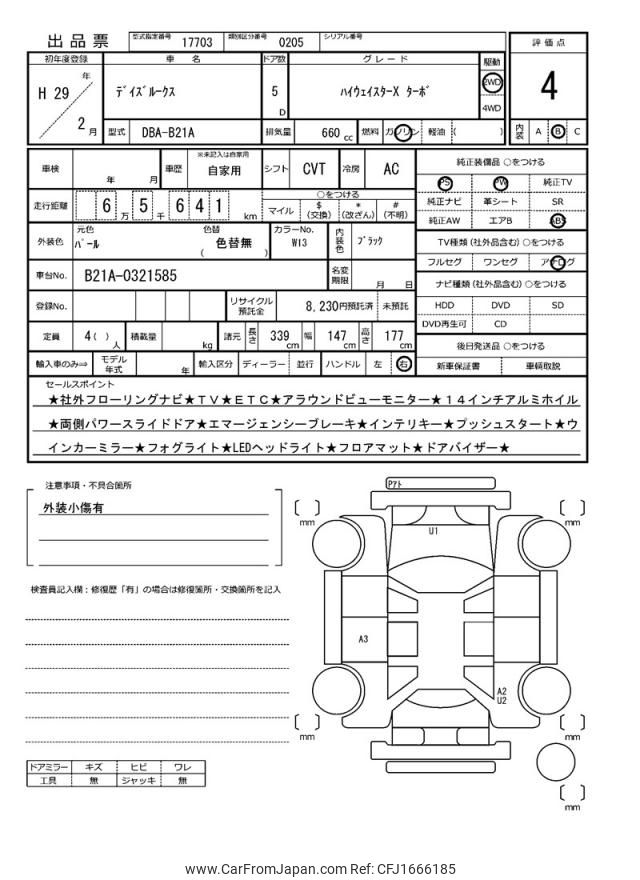 出品票 型式指定番号 17703 類別区分番号 0205 シリアル番号
評価点
4
内装 A B C
初年度登録 車名 ドア数 グレード 駆動
H 29 年 2 月 ﾃﾞｲｽﾞﾙｰｸｽ 5 D ﾊｲｳｪｲｽﾀｰX ﾀｰﾎﾞ 2WD 4WD
型式 DBA-B21A 排気量 660 cc 燃料 ガソリン 軽油 ( )
車検 年 月 車歴 ※未記入は自家用 自家用 シフト CVT 冷房 AC
走行距離 6 万 5 千 6 4 1 km ○をつける マイル $ (交換) * (改ざん) # (不明)
外装色 元色 ﾊﾟｰﾙ 色替 ( 色替無 ) カラーNo. W13 内装色 ﾌﾞﾗｯｸ
車台No. B21A-0321585 名変期限 月 日
登録No. リサイクル預託金 8,230円預託済 未預託
定員 4 ( ) 人 積載量 kg 諸元 長さ 339 cm 幅 147 cm 高さ 177 cm
輸入車のみ⇒ モデル年式 年 輸入区分 ディーラー 並行 ハンドル 左 右
純正装備品 ○をつける
PS PW 純正TV
純正ナビ 革シート SR
純正AW エアB ABS
TV種類 (社外品含む) ○をつける
フルセグ ワンセグ アナログ
ナビ種類 (社外品含む) ○をつける
HDD DVD SD
DVD再生可 CD
後日発送品 ○をつける
新車保証書 車輌取説
セールスポイント
★社外フローリングナビ★ＴＶ★ＥＴＣ★アラウンドビューモニター★１４インチアルミホイル
★両側パワースライドドア★エマージェンシーブレーキ★インテリキー★プッシュスタート★ウ
インカーミラー★フォグライト★LEDヘッドライト★フロアマット★ドアバイザー★
注意事項・不具合箇所
外装小傷有
検査員記入欄：修復歴「有」の場合は修復箇所・交換箇所を記入
ドアミラー キズ ヒビ ワレ
工具 無 ジャッキ 無
Pｱﾄ
U1
A3
A2
U2
mm
mm
mm
mm
mm
www.CarFromJapan.com Ref: CFJ1666185